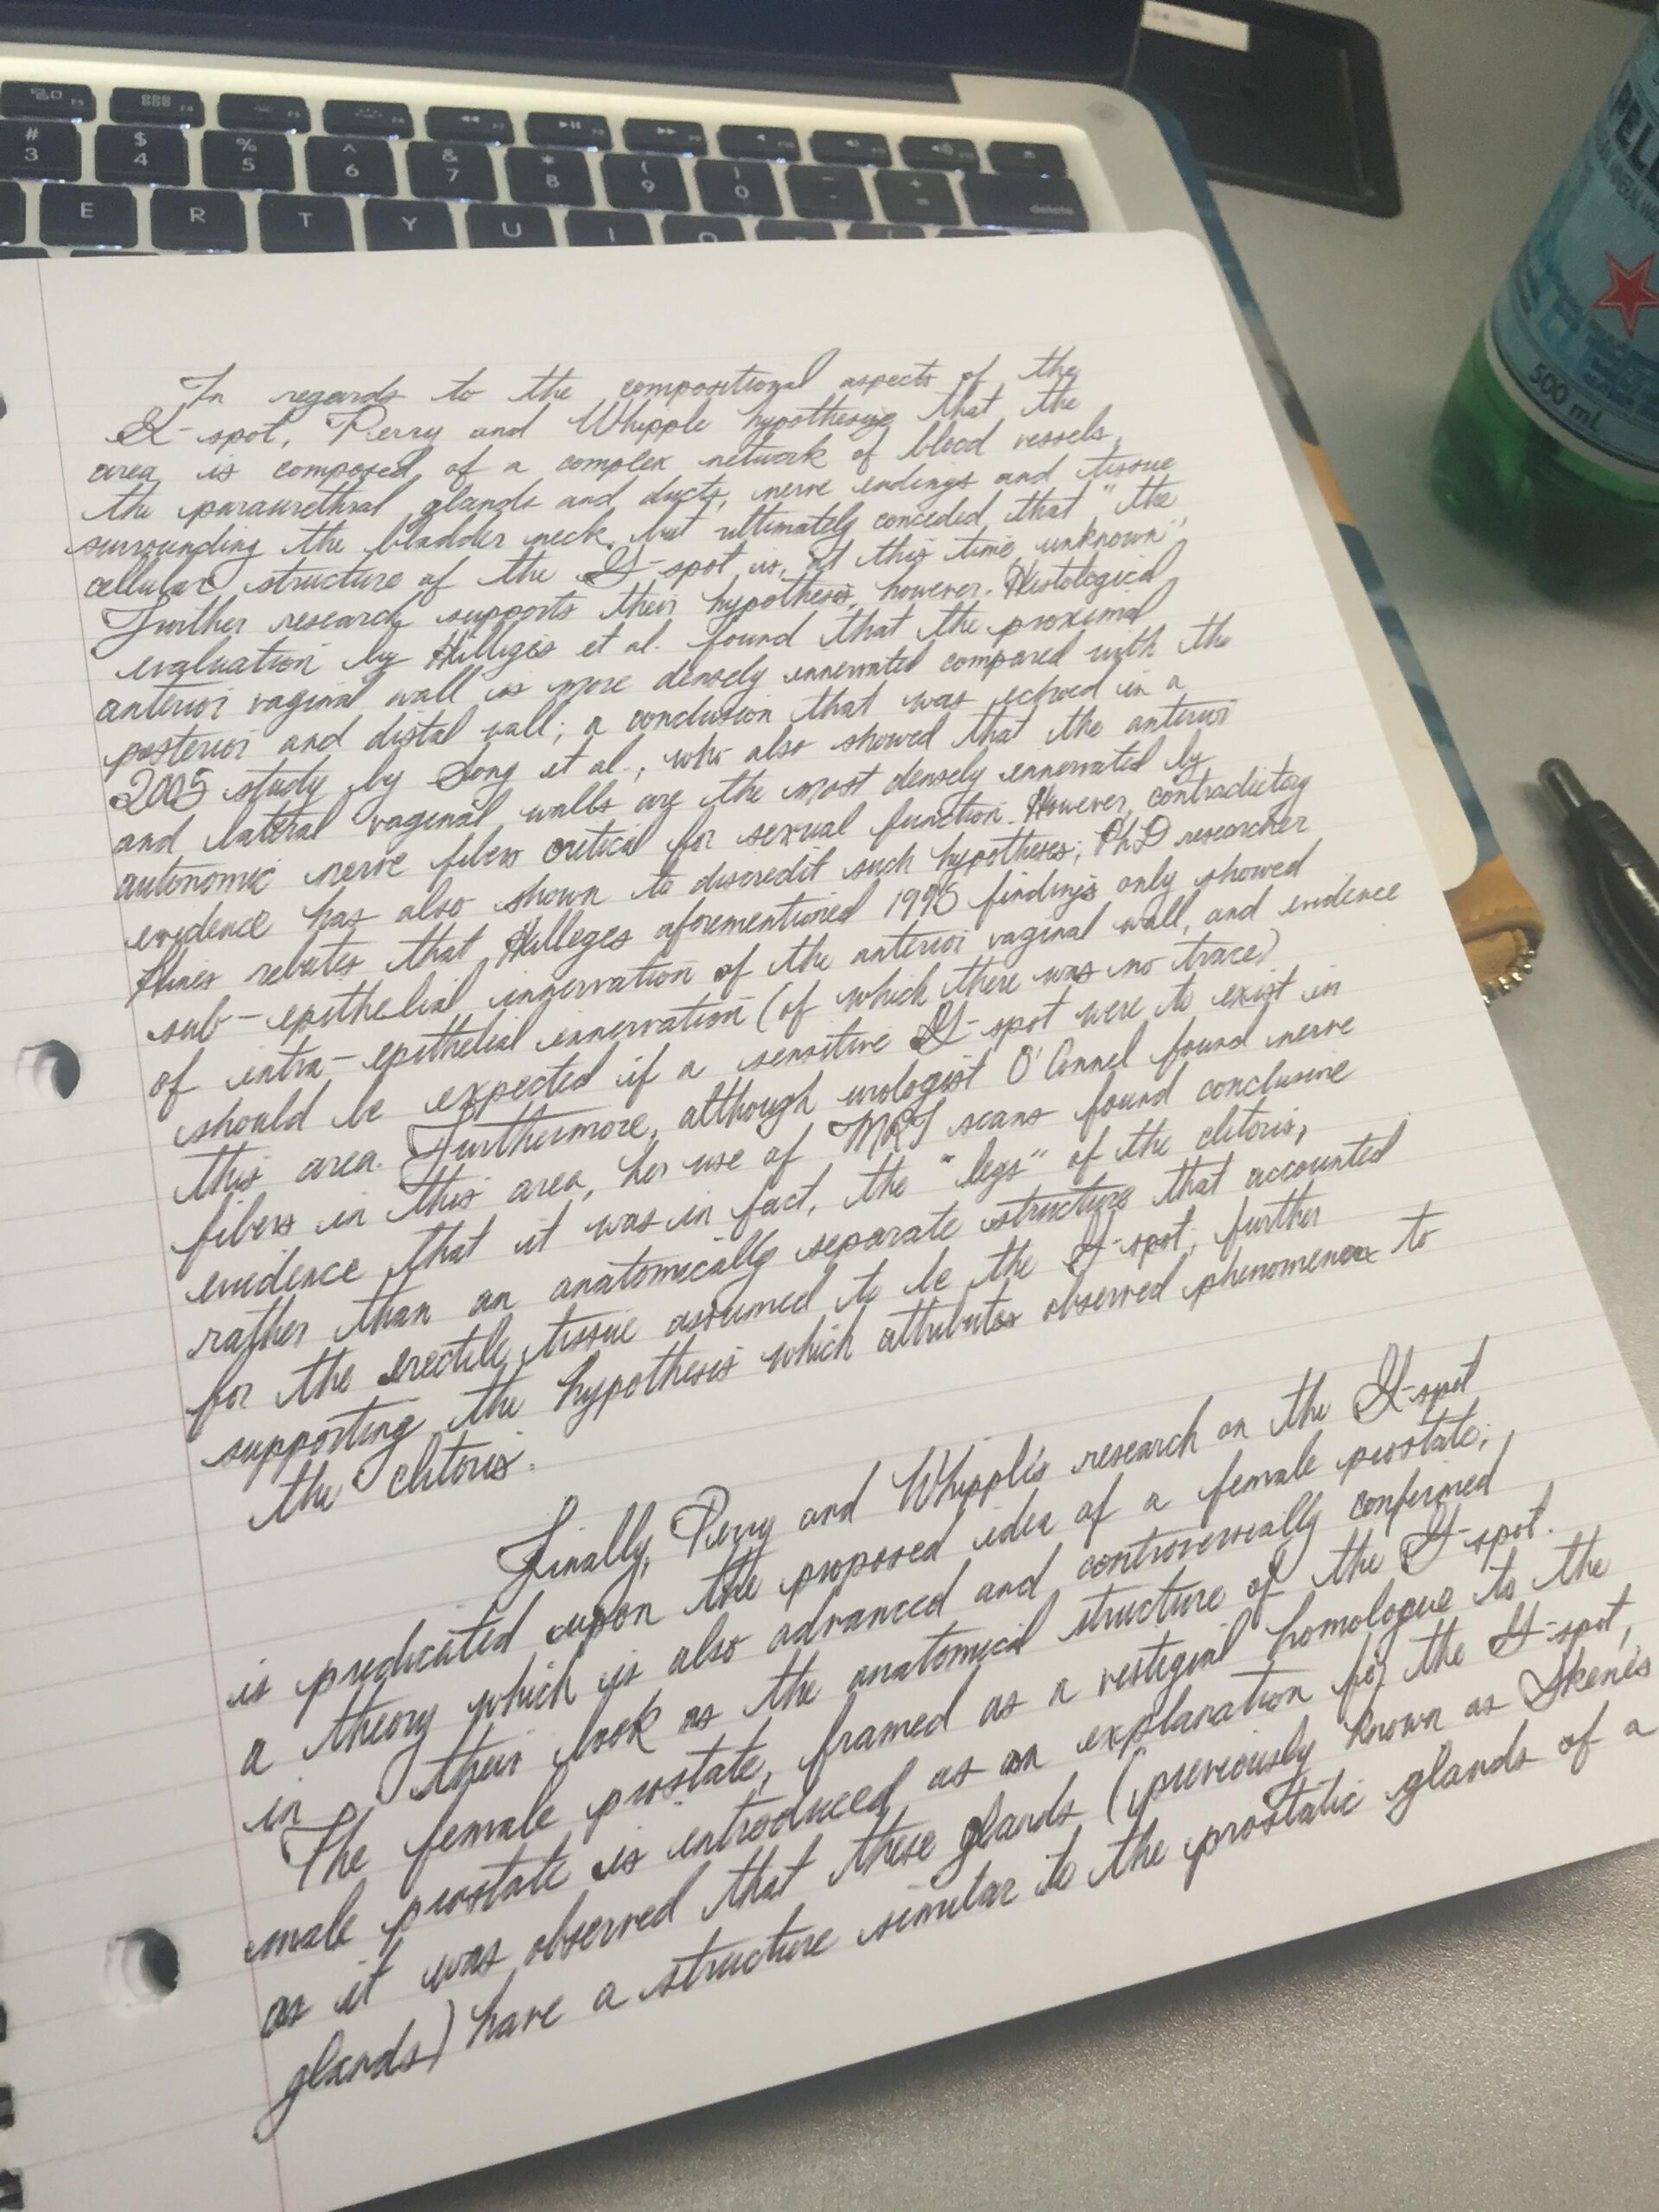 #
3
$
4
%
5
^
6
&
7
*
8
(
9
)
0
delete
E
R
T
Y
U
I
O
500 mL
In regards to the compositional aspects of the
G-spot, Perry and Whipple hypothesize that the
area is composed of a complex network of blood vessels,
the paraurethral glands and ducts, nerve endings and tissue
surrounding the bladder neck, but ultimately conceded that "the
cellular structure of the G-spot is, at this time, unknown".
Further research supports their hypothesis, however. Histological
evaluation by Hilliges et al. found that the proximal
anterior vaginal wall is more densely innervated compared with the
posterior and distal wall; a conclusion that was echoed in a
2005 study by Song et al., who also showed that the anterior
and lateral vaginal walls are the most densely innervated by
autonomic nerve fibers critical for sexual function. However, contradictory
evidence has also shown to discredit such hypotheses; PhD researcher
Hines rebutes that Hilleges aforementioned 1995 findings only showed
sub-epithelial innervation of the anterior vaginal wall, and evidence
of intra-epithelial innervation (of which there was no trace)
should be expected if a sensitive G-spot were to exist in
this area. Furthermore, although urologist O'Connel found nerve
fibers in this area, her use of MRI scans found conclusive
evidence that it was in fact, the "legs" of the clitoris,
rather than an anatomically separate structure that accounted
for the erectile tissue assumed to be the G-spot; further
supporting the hypothesis which attributes observed phenomenon to
the clitoris.
Finally, Perry and Whipple's research on the G-spot
is predicated upon the proposed idea of a female prostate;
a theory which is also advanced and controversially confirmed
in their book as the anatomical structure of the G-spot.
The female prostate, framed as a vestigial homologue to the
male prostate is introduced as an explanation for the G-spot,
as it was observed that these glands (previously known as Skene's
glands) have a structure similar to the prostatic glands of a